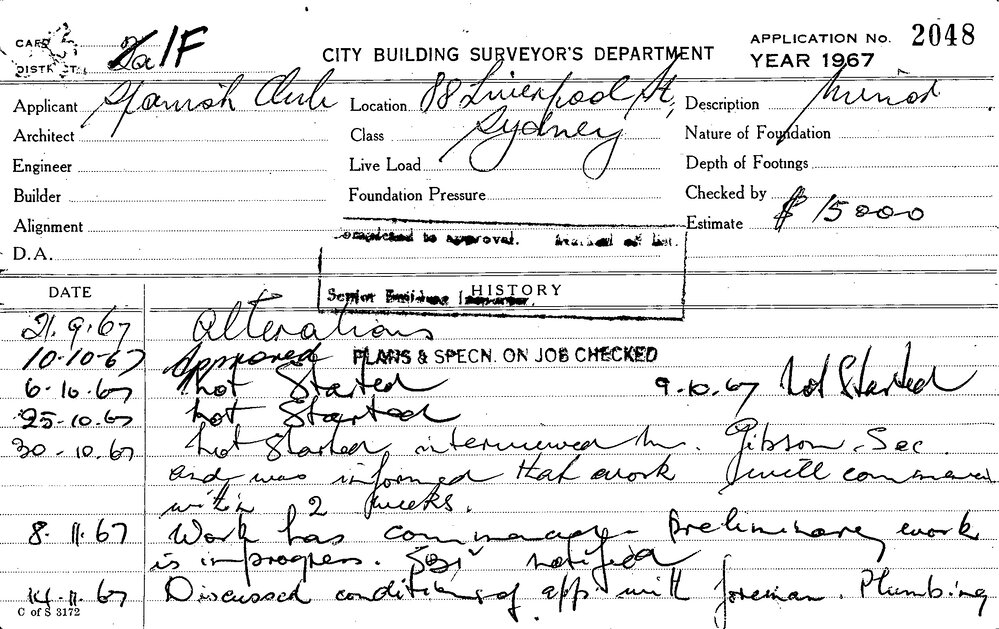 CARD
DISTRICT
2a/F
CITY BUILDING SURVEYOR'S DEPARTMENT
APPLICATION No. 2048
YEAR 1967
Applicant Spanish Club Location 88 Liverpool St, Description Minor
Architect Class Sydney Nature of Foundation
Engineer Live Load Depth of Footings
Builder Foundation Pressure Checked by
Alignment Estimate $ 15000
D.A. Completed to approval.
DATE HISTORY
Senior Building Inspector.
21.9.67 Alterations
10-10-67 Approved PLANS & SPECN. ON JOB CHECKED
6-10-67 Not Started 9-10-67 Not Started
25-10-67 Not Started
30-10-67 Not Started interviewed Mr. Gibson. Sec
and was informed that work will commence
within 2 weeks.
8.11.67 Work has commenced - Preliminary work
is in progress. notified
14-11-67 Discussed conditions of app. with foreman. Plumbing
C of S 3172